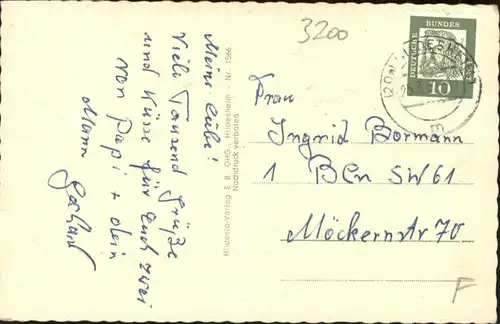 3200
DEUTSCHE BUNDESPOST
10
Meine Liebe!
Viele Tausend Grüße
und Küsse für Euch zwei
von Papi + dein
Mann Gerhard
Hildesia-Verlag E. B. OHG., Hildesheim - Nr. 1566
Nachdruck verboten
Frau
Ingrid Bormann
1 Bln SW61
Möckernstr 70
F